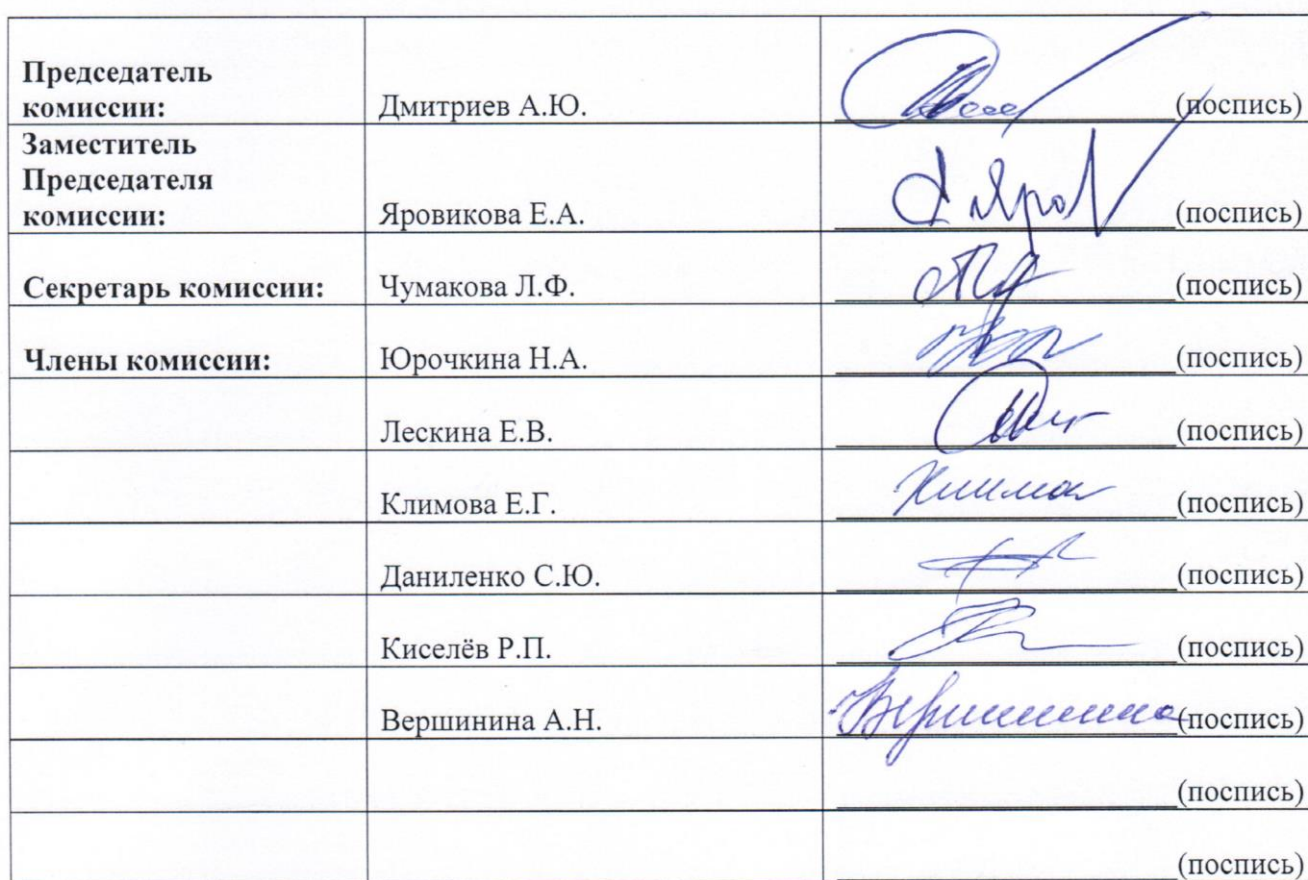 Председатель
комиссии: Дмитриев А.Ю. (поспись)
Заместитель
Председателя
комиссии: Яровикова Е.А. (поспись)
Секретарь комиссии: Чумакова Л.Ф. (поспись)
Члены комиссии: Юрочкина Н.А. (поспись)
Лескина Е.В. (поспись)
Климова Е.Г. (поспись)
Даниленко С.Ю. (поспись)
Киселёв Р.П. (поспись)
Вершинина А.Н. (поспись)
(поспись)
(поспись)